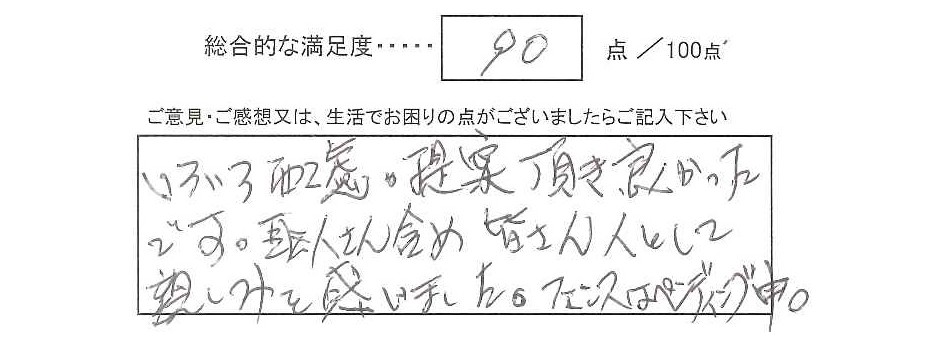 総合的な満足度・・・・・ 90 点 ／100点
ご意見・ご感想又は、生活でお困りの点がございましたらご記入下さい
いろいろ配慮。提案頂き良かった
です。職人さん含め 皆さん人として
親しみを感いました。フェンスはペンディング中。